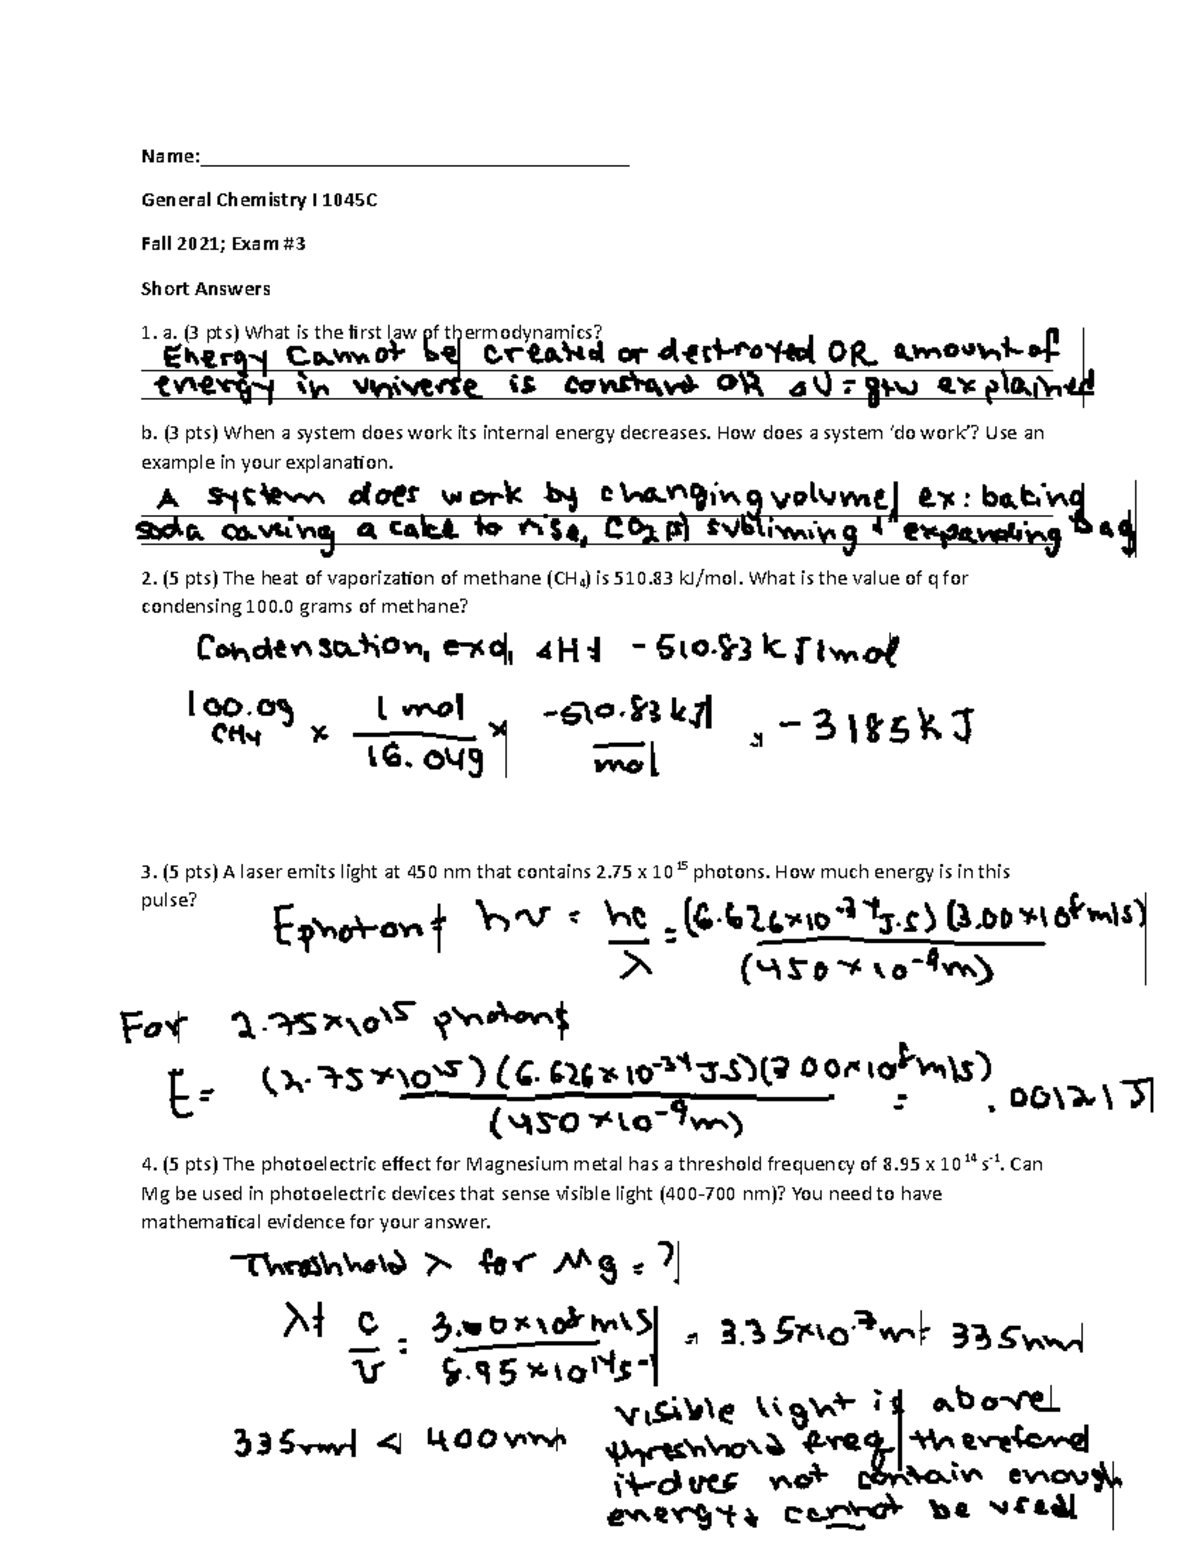 Name:
General Chemistry I 1045C
Fall 2021; Exam #3
Short Answers
1. a. (3 pts) What is the first law of thermodynamics?
Energy cannot be created or destroyed OR amount of
energy in universe is constant OR ΔU = q+w explained
b. (3 pts) When a system does work its internal energy decreases. How does a system ‘do work’? Use an
example in your explanation.
A system does work by changing volume, ex: baking
soda causing a cake to rise, CO2 (s) subliming + expanding bag
2. (5 pts) The heat of vaporization of methane (CH₄) is 510.83 kJ/mol. What is the value of q for
condensing 100.0 grams of methane?
Condensation, exo, ΔH = -510.83 kJ/mol
100.0g CH4 × 1 mol / 16.04g × -510.83 kJ / mol = -3185 kJ
3. (5 pts) A laser emits light at 450 nm that contains 2.75 x 10¹⁵ photons. How much energy is in this
pulse?
Ephoton = hν = hc / λ = (6.626×10⁻³⁴ J.S) (3.00×10⁸ m/s) / (450×10⁻⁹ m)
For 2.75×10¹⁵ photons
E = (2.75×10¹⁵) (6.626×10⁻³⁴ J.S) (3.00×10⁸ m/s) / (450×10⁻⁹ m) = .00121 J
4. (5 pts) The photoelectric effect for Magnesium metal has a threshold frequency of 8.95 x 10¹⁴ s⁻¹. Can
Mg be used in photoelectric devices that sense visible light (400-700 nm)? You need to have
mathematical evidence for your answer.
Threshhold λ for Mg = ?
λ = c / ν = 3.00×10⁸ m/s / 8.95×10¹⁴ s⁻¹ = 3.35×10⁻⁷ m = 335nm
335nm < 400nm
visible light is above
threshhold freq, therefore
it does not contain enough
energy, cannot be used